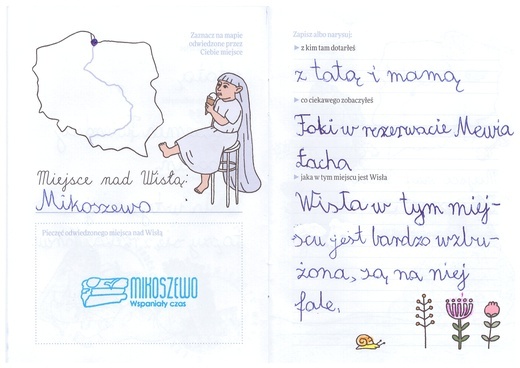 Zaznacz na mapie
odwiedzone przez
Ciebie miejsce
Miejsce nad Wisłą:
Mikoszewo
Pieczęć odwiedzonego miejsca nad Wisłą
MIKOSZEWO
Wspaniały czas
Zapisz albo narysuj:
▸ z kim tam dotarłeś
z tatą i mamą
▸ co ciekawego zobaczyłeś
Foki w rezerwacie Mewia
Łacha
▸ jaka w tym miejscu jest Wisła
Wisła w tym miej-
scu jest bardzo wzbu-
żona, są na niej
fale.